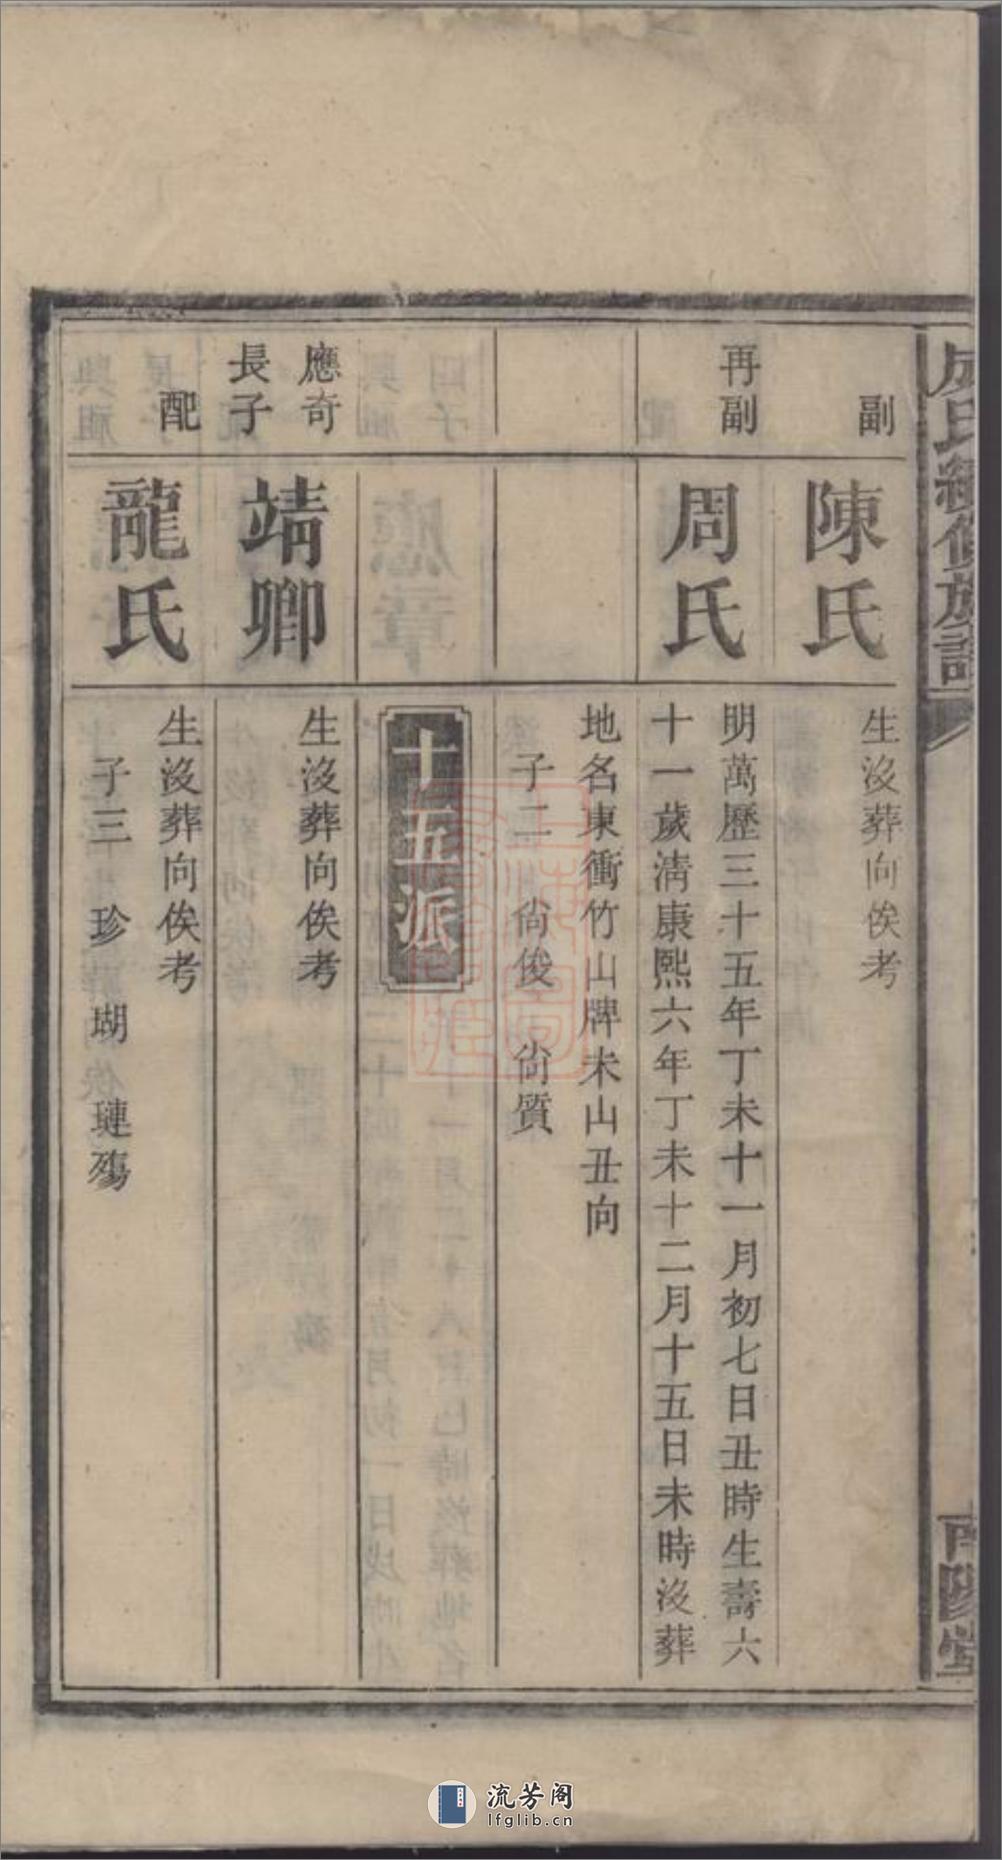 氏續修族譜
堂
副
陳氏
生沒葬向俟考
再副
周氏
明萬歷三十五年丁未十一月初七日丑時生壽六
十一歲淸康熙六年丁未十二月十五日未時沒葬
地名東衝竹山牌未山丑向
子二 尙俊 尙質
十五派
應奇
長子
靖卿
生沒葬向俟考
配
龍氏
生沒葬向俟考
子三 珍 瑚 璉殤
流芳阁
lfglib.cn